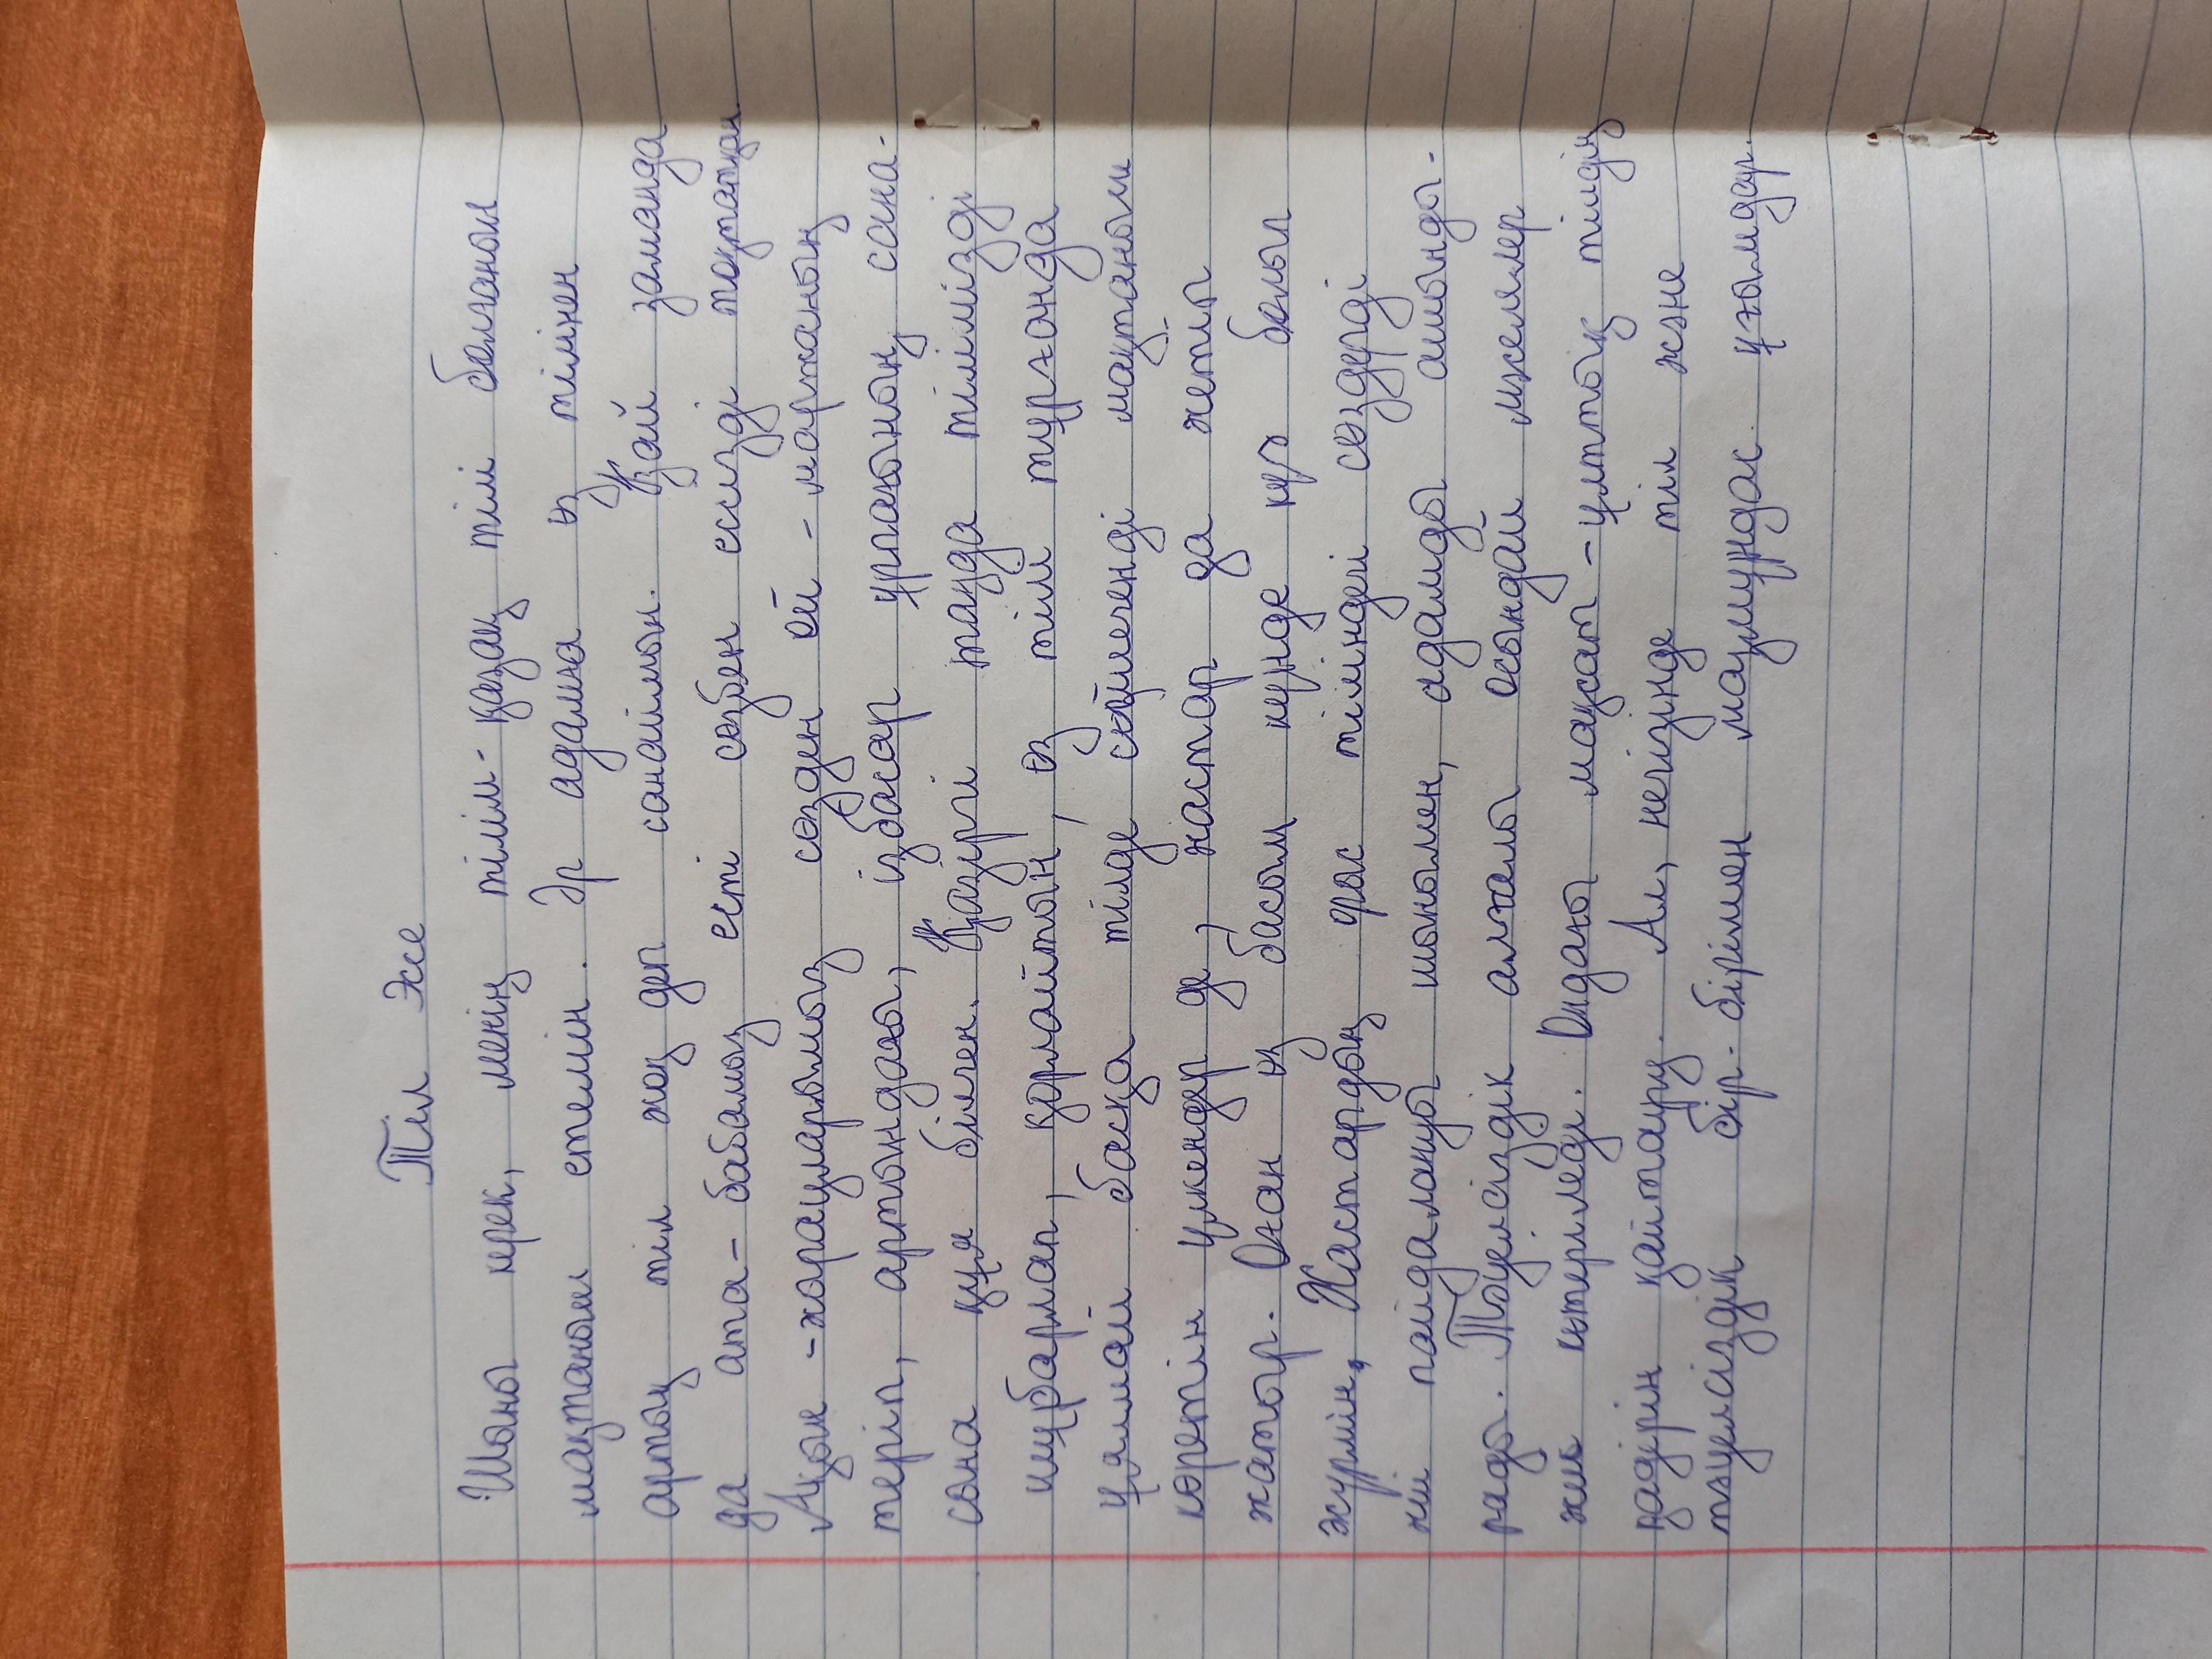 Тіл Эссе
Шыны керек, менің тілім - қазақ тілі болғанын
мақтаным етемін. Әр адамға өз тілінен
артық тіл жоқ деп санаймын. Қай заманда
да ата-бабамыз есті сөзбен ессізді тоқтатқан.
Ақын-жырауларымыз сөзден ой-маржанын
теріп, артындағы, ізбасар ұрпағының сана-
сына құя білген. Қазіргі таңда тілімізді
шұбарлап, қорлайтын, өз тілі тұрғанда
ұялмай басқа тілде сөйлегенді мақтаныш
көретін үлкендер де, жастар да жетіп
жатыр. Оған өз басым күнде куә болып
жүрмін. Жастардың орыс тіліндегі сөздерді
жиі пайдалануы шынымен, адамды ашынды-
рады. Тәуелсіздік алғалы осындай мәселелер
жиі көтеріледі. Ондағы мақсат - ұлттық тілдің
қадірін қайтару. Ал, негізінде тіл және
тәуелсіздік бір-бірімен мазмұндас ұғымдар.